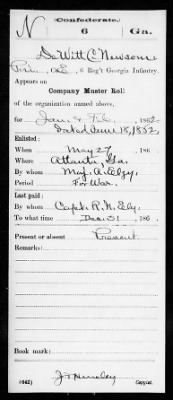 Confederate.
N 6 Ga.
DeWitt C. Newsom
Co. E, 6 Reg't Georgia Infantry.
Appears on
Company Muster Roll
of the organization named above,
for Jan. & Feb., 1862.
dated June 18, 1862
Enlisted:
When May 27, 186
Where Atlanta, Ga.
By whom Maj. A.
Period For War.
Last paid:
By whom Capt. R. N. Ely.
To what time Dec. 31, 186 .
Present or absent Present
Remarks:
Book mark:
(642)
Copyist.